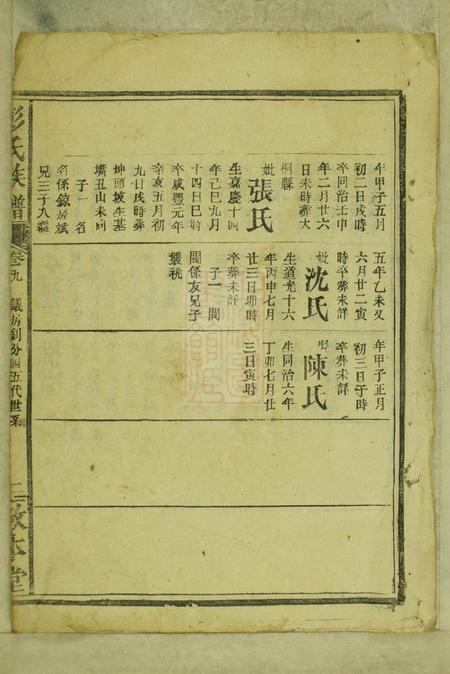 年甲子五月
初二日戌時
卒同治壬申
年二月廿六
日未時葬大
桐縣
妣張氏
生嘉慶十四
年己巳九月
十四日巳時
卒咸豐元年
辛亥五月初
九日戌時葬
坤頭坡生基
嘴丑山未向
子一名
名係錦房斌
兄三子入繼
五年乙未又
六月廿二寅
時卒葬未詳
妣沈氏
生道光十六
年丙申七月
廿三日卯時
卒葬未詳
子一閣
閣係友兄子
襲祧
年甲子正月
初三日子時
卒葬未詳
陳氏
生同治六年
丁卯七月廿
三日寅時
彭氏族譜
卷九
議房劉分四五代世系
三致本堂